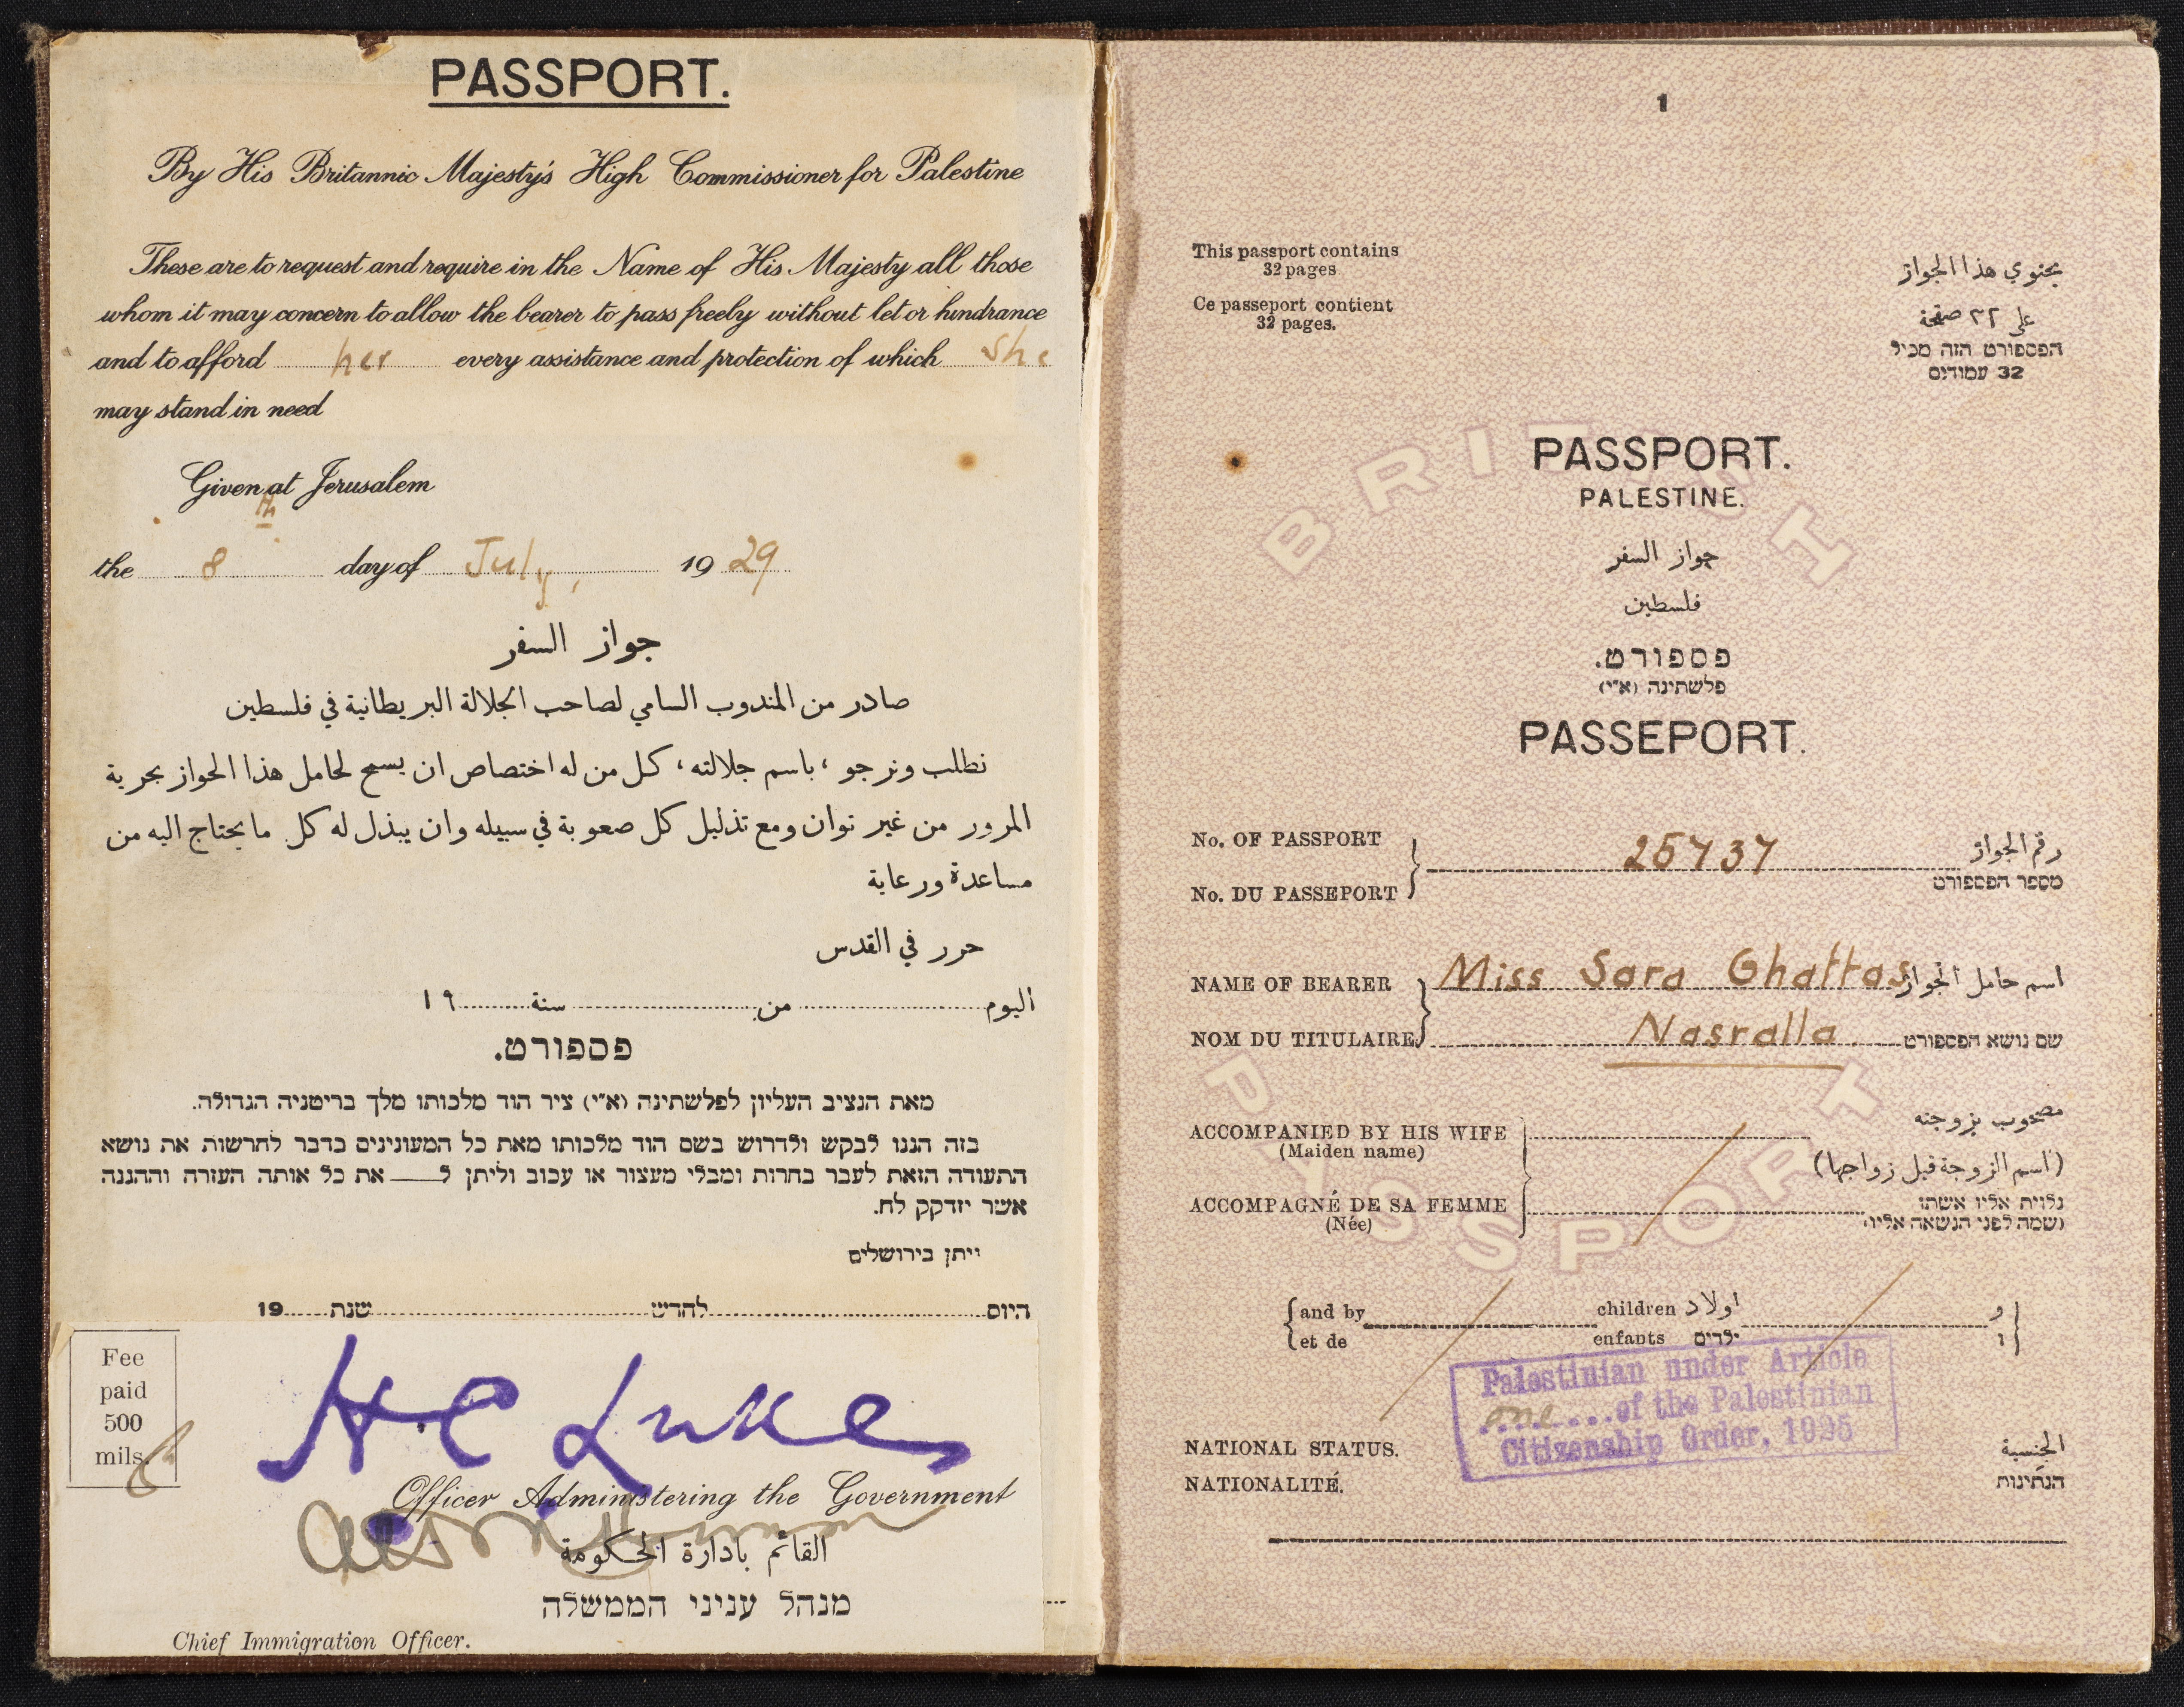 PASSPORT.
By His Britannic Majesty's High Commissioner for Palestine
These are to request and require in the Name of His Majesty all those
whom it may concern to allow the bearer to pass freely without let or hindrance
and to afford her every assistance and protection of which she
may stand in need
Given at Jerusalem
the 8th day of July, 1929
جواز السفر
صادر من المندوب السامي لصاحب الجلالة البريطانية في فلسطين
نطلب ونرجو ، باسم جلالته ، كل من له اختصاص ان يسمح لحامل هذا الجواز بحرية
المرور من غير توان ومع تذليل كل صعوبة في سبيله وان يبذل له كل ما يحتاج اليه من
مساعدة ورعاية
حرر في القدس
اليوم من سنة ١٩
פספורט.
מאת הנציב העליון לפלשתינה (א״י) ציר הוד מלכותו מלך בריטניה הגדולה.
בזה הננו לבקש ולדרוש בשם הוד מלכותו מאת כל המעונינים בדבר להרשות את נושא
התעודה הזאת לעבר בחרות ומבלי מעצור או עכוב וליתן ל___ את כל אותה העזרה וההגנה
אשר יזדקק לה.
ויתן בירושלים
היום להדש שנת 19
Fee
paid
500
mils.
H C Luke
Officer Administering the Government
القائم بادارة الحكومة
מנהל עניני הממשלה
Chief Immigration Officer.
1
This passport contains
32 pages
Ce passeport contient
32 pages.
يحتوي هذا الجواز
على ٣٢ صفحة
הפספורט הזה מכיל
32 עמודים
BRITISH
PASSPORT.
PALESTINE.
جواز السفر
فلسطين
פספורט.
פלשתינה (א״י)
PASSEPORT.
No. OF PASSPORT
No. DU PASSEPORT
25737
رقم الجواز
מספר הפספורט
NAME OF BEARER
NOM DU TITULAIRE
Miss Sara Ghattas
Nasralla
اسم حامل الجواز
שם נושא הפספורט
PASSPORT
ACCOMPANIED BY HIS WIFE
(Maiden name)
ACCOMPAGNÉ DE SA FEMME
(Née)
مصحوب بزوجته
(اسم الزوجة قبل زواجها)
נלוית אליו אשתו
(שמה לפני הנשאה אליו)
and by children اولاد و
et de enfants ילדים ו
Palestinian under Article
one of the Palestinian
Citizenship Order, 1925
NATIONAL STATUS.
NATIONALITÉ.
الجنسية
הנתינות